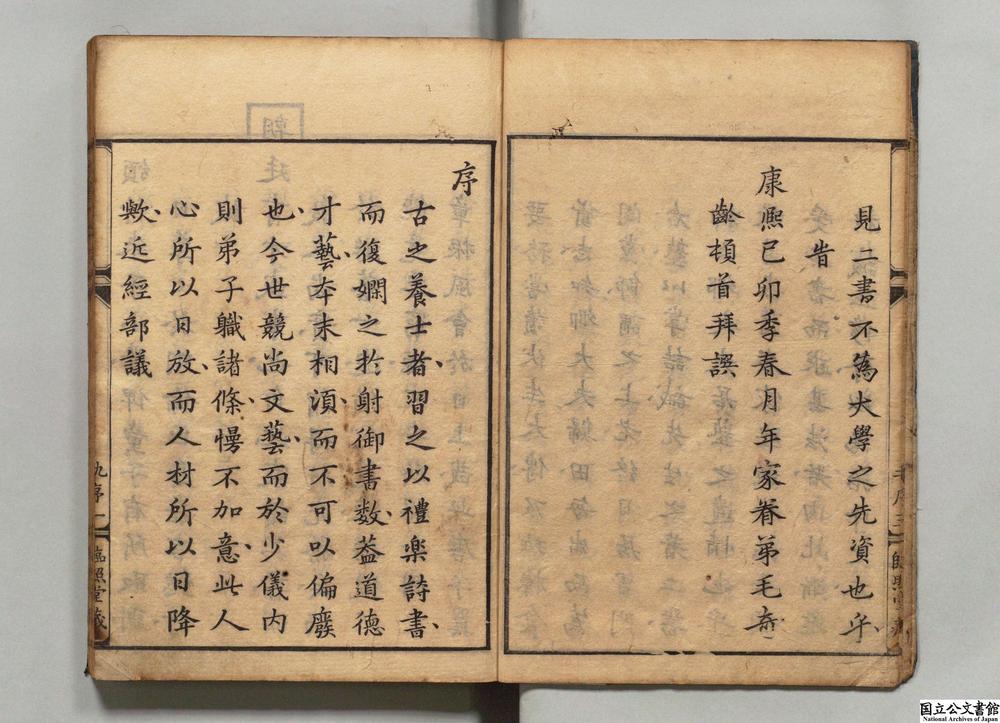 見二書不為大學之先資也乎
昔
康熙己卯季春月年家眷弟毛奇
齡頓首拜譔
序
古之養士者習之以禮樂詩書
而復嫻之於射御書數蓋道德
才藝本末相湏而不可以偏廢
也今世競尚文藝而於少儀內
則弟子職諸條慢不加意此人
心所以日放而人材所以日降
歟近經部議
仇序一
朝
国立公文書館
National Archives of Japan